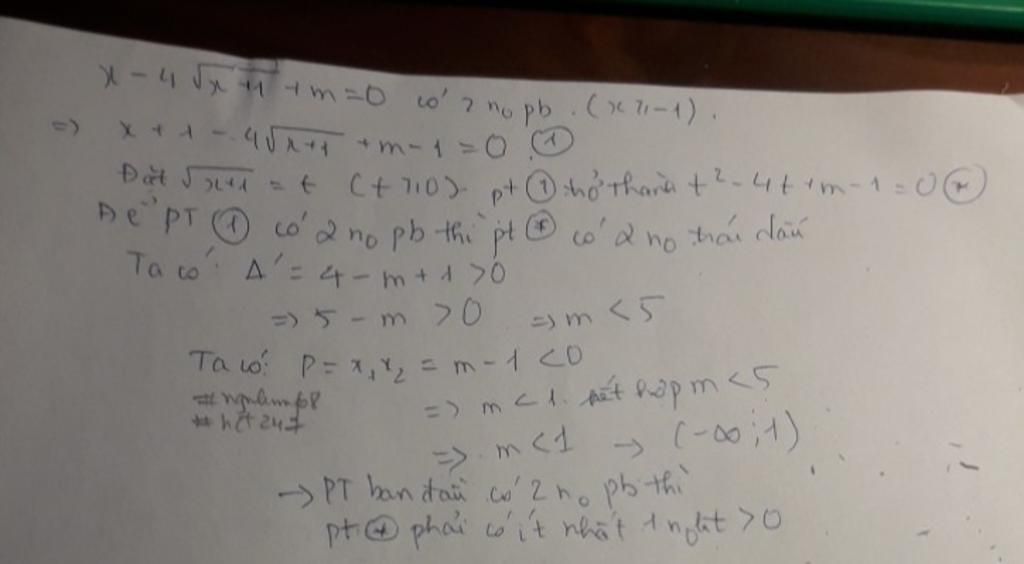 x - 4√(x+1) + m = 0 có 2 n₀ pb. (x ≥ -1).
=> x + 1 - 4√(x+1) + m - 1 = 0 ①
Đặt √(x+1) = t (t ≥ 0). pt ① trở thành t² - 4t + m - 1 = 0 (*)
Để PT ① có 2 n₀ pb thì pt (*) có 2 n₀ trái dấu
Ta có: Δ' = 4 - m + 1 > 0
=> 5 - m > 0 => m < 5
Ta có: P = x₁x₂ = m - 1 < 0
=> m < 1. kết hợp m < 5
#
# h
=> m < 1 → (-∞; 1)
→ PT ban đầu có 2 n₀ pb thì
pt (*) phải có ít nhất 1 n₀ > 0